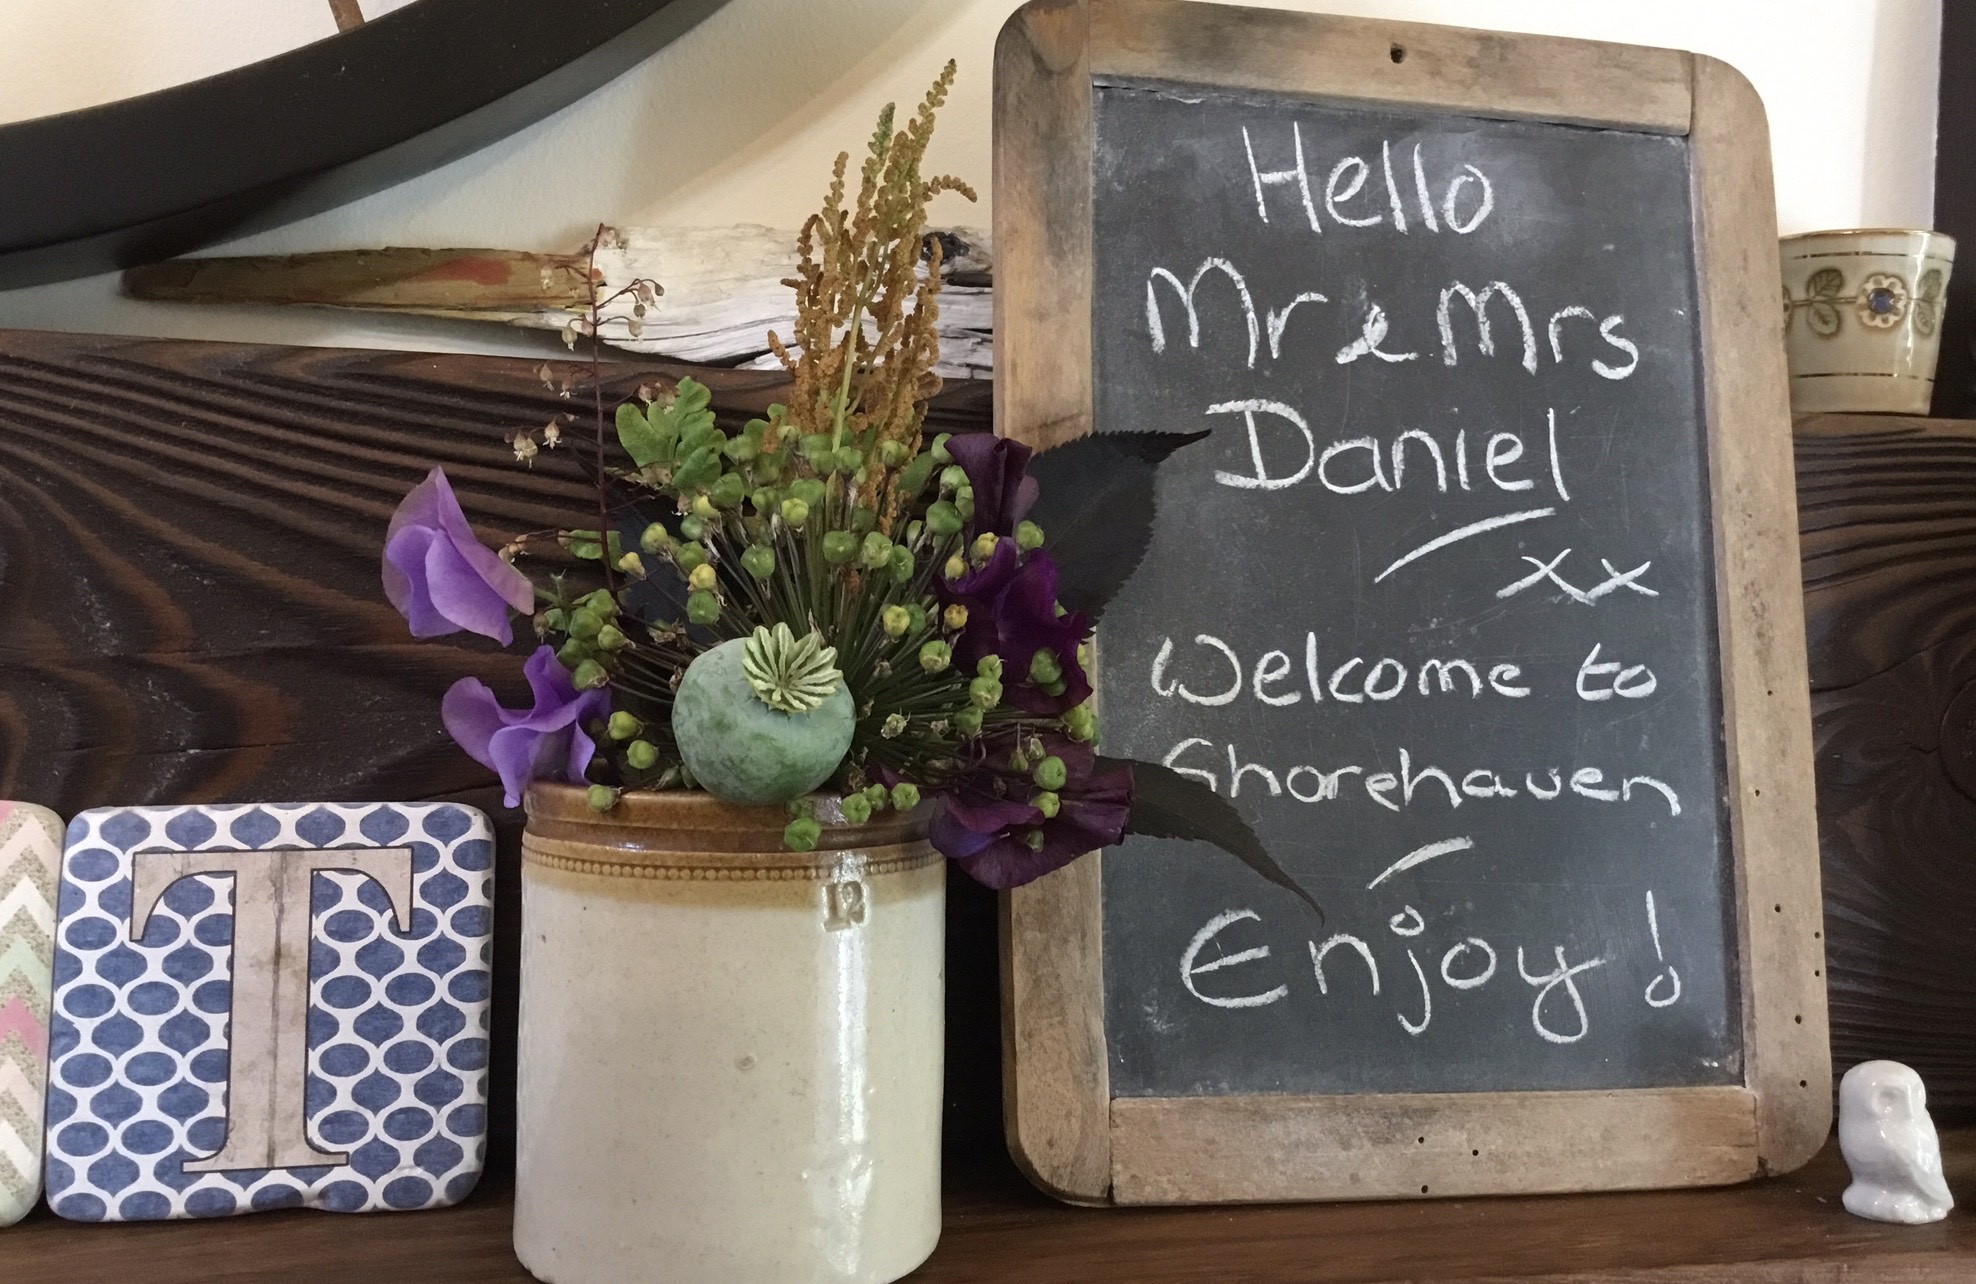 Hello
Mr & Mrs
Daniel
xx
Welcome to
Shorehaven
Enjoy!
T
12